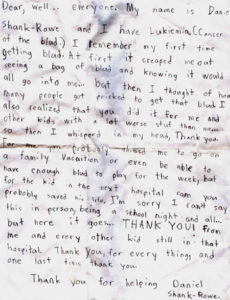 Dear, well.. everyone. My name is Daniel
Shank-Rowe and I have Lukiemia. (Cancer
of the blud.) I remember my first time
getting blud. At first it creaped me out
seeing a bag of blud and knowing it would
all go into me... but then I thought of how
many people got pricked to get that blud. I
also realized that you did it for me and
other kids with a lot worse stuf then me...
so then I whisperd in my head, Thank you.
for me you probably me to go on
a family vacation or even be able to
have enough blud to play for the week, but
for the kid in the next hospital room you
probably saved his life. I'm sorry I can't say
this in person, being a school night and all...
but here it goes... THANK YOU! from
me and every other kid still in that
hospital. Thank You, for every thing and
one last time thank you.
Thank you for helping Daniel
Shank-Rowe.